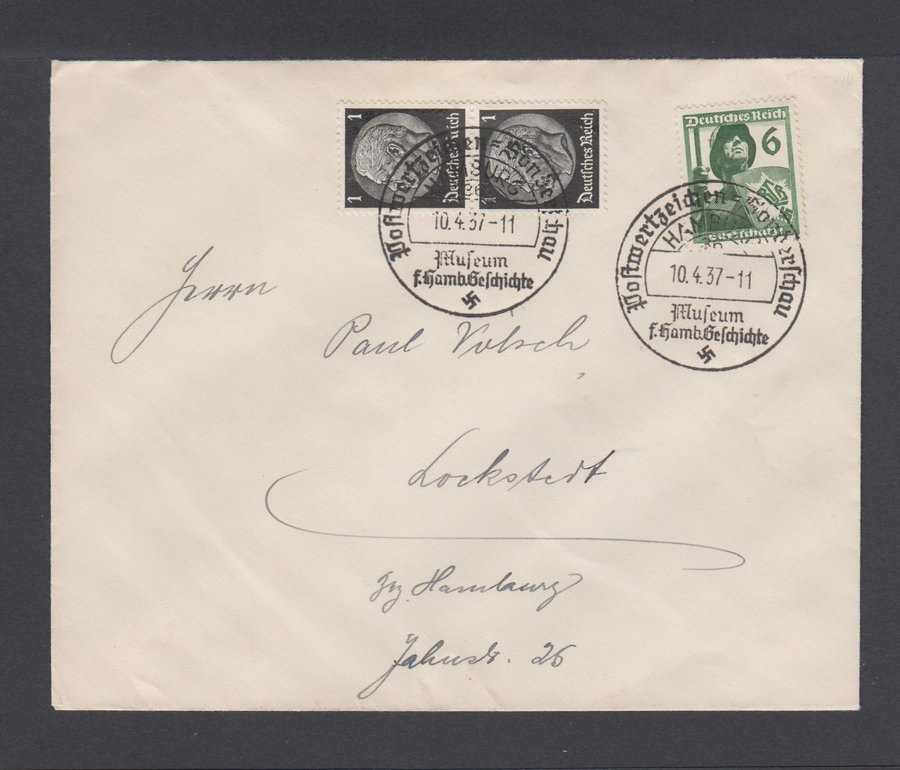 1 Deutsches Reich
1 Deutsches Reich
Deutsches Reich
6
Luftschutz
Postwertzeichen-Sonderschau
HAMBURG
10.4.37-11
Museum
f. Hamb. Geschichte
Postwertzeichen-Sonderschau
HAMBURG
10.4.37-11
Museum
f. Hamb. Geschichte
Herrn
Paul Volsch
Lockstedt
Bz. Hamburg
Jahnstr. 26